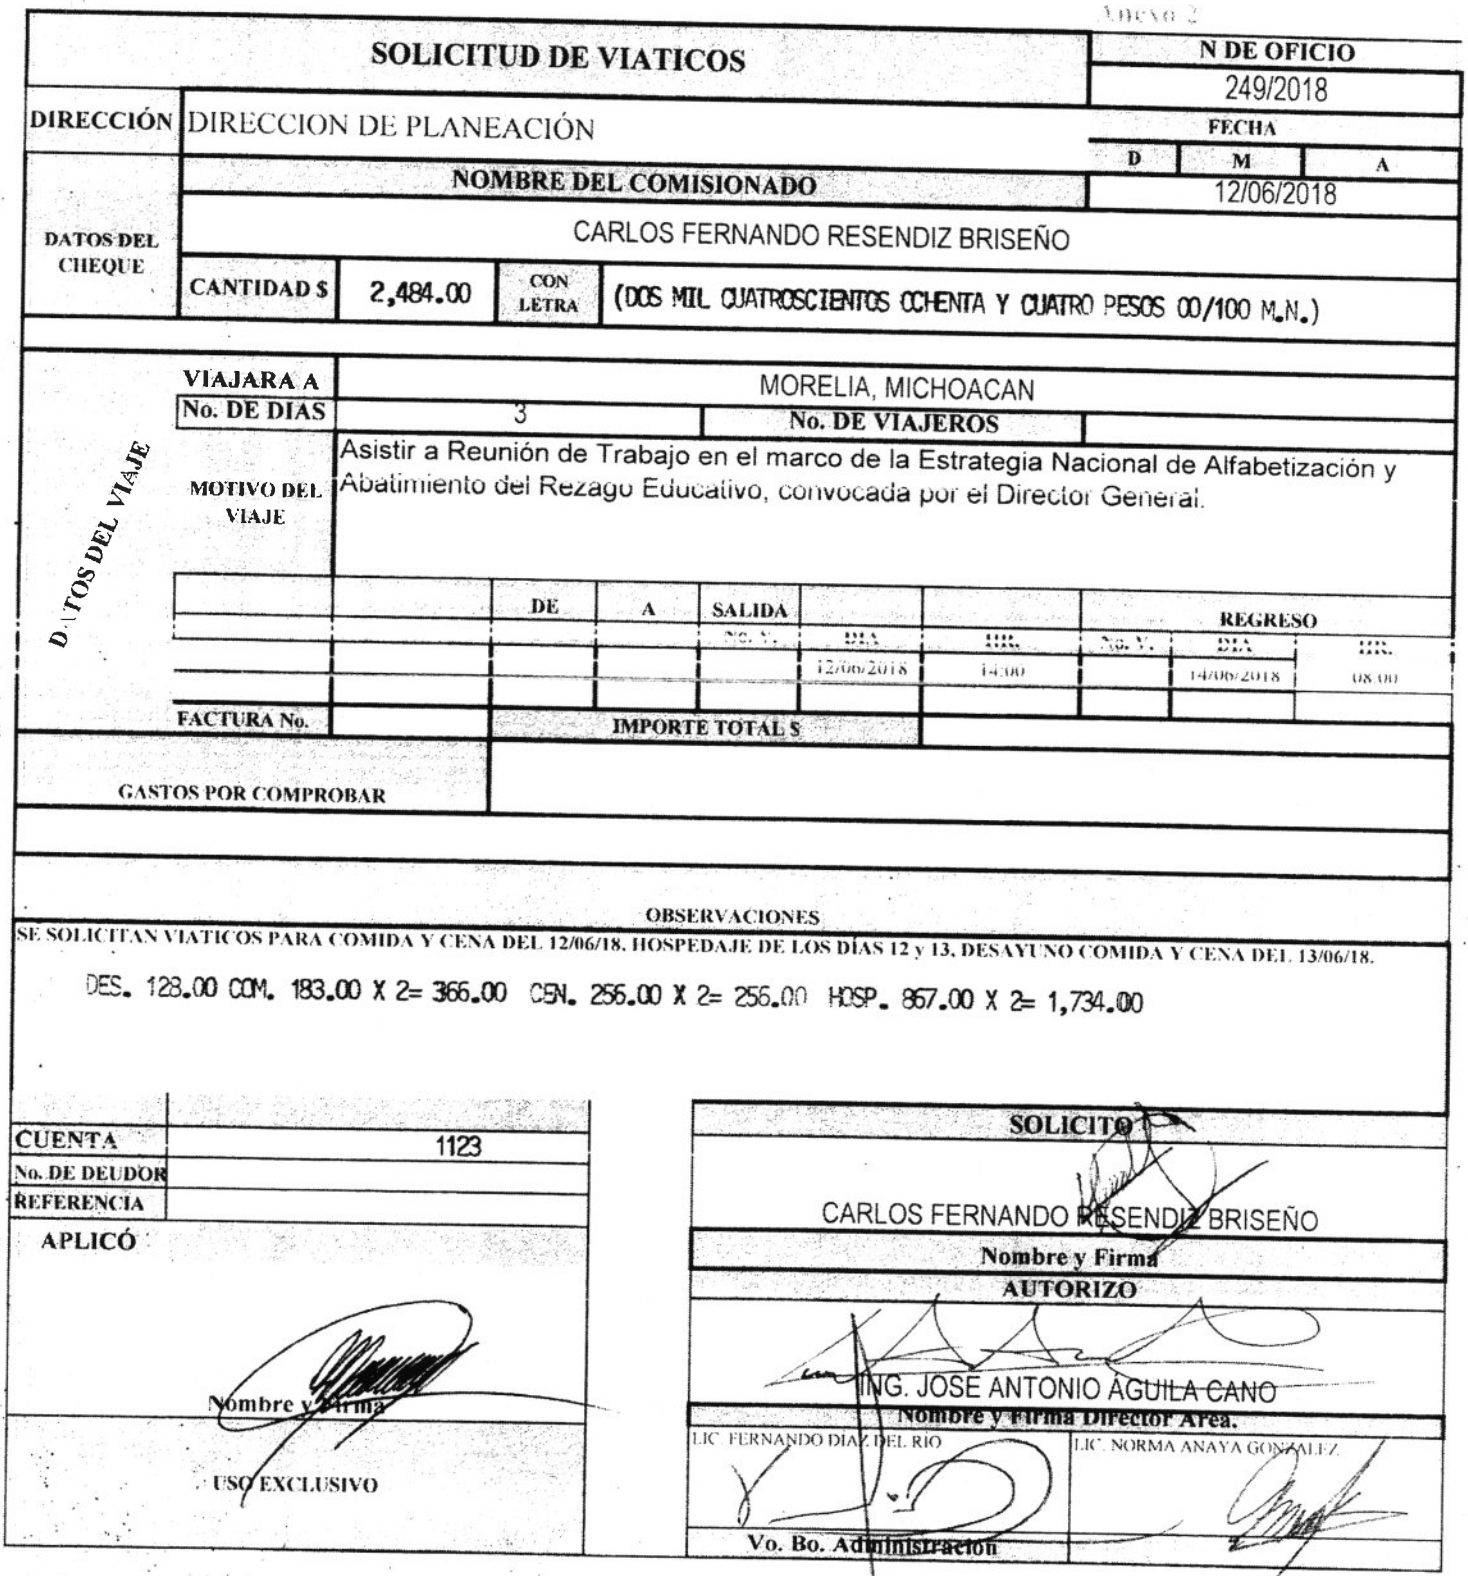 Anexo 2
SOLICITUD DE VIATICOS
N DE OFICIO
249/2018
DIRECCIÓN DIRECCION DE PLANEACIÓN
FECHA
D M A
12/06/2018
NOMBRE DEL COMISIONADO
CARLOS FERNANDO RESENDIZ BRISEÑO
DATOS DEL CHEQUE
CANTIDAD $ 2,484.00 CON LETRA (DOS MIL CUATROSCIENTOS OCHENTA Y CUATRO PESOS 00/100 M.N.)
DATOS DEL VIAJE
VIAJARA A MORELIA, MICHOACAN
No. DE DIAS 3 No. DE VIAJEROS
MOTIVO DEL VIAJE
Asistir a Reunión de Trabajo en el marco de la Estrategia Nacional de Alfabetización y
Abatimiento del Rezago Educativo, convocada por el Director General.
DE A SALIDA REGRESO
No. V. DIA HR. No. V. DIA HR.
12/06/2018 14:00 14/06/2018 08:00
FACTURA No. IMPORTE TOTAL $
GASTOS POR COMPROBAR
OBSERVACIONES
SE SOLICITAN VIATICOS PARA COMIDA Y CENA DEL 12/06/18. HOSPEDAJE DE LOS DÍAS 12 y 13, DESAYUNO COMIDA Y CENA DEL 13/06/18.
DES. 128.00 COM. 183.00 X 2= 366.00 CEN. 256.00 X 2= 256.00 HOSP. 867.00 X 2= 1,734.00
CUENTA 1123
No. DE DEUDOR
REFERENCIA
APLICÓ
Nombre y Firma
USO EXCLUSIVO
SOLICITO
CARLOS FERNANDO RESENDIZ BRISEÑO
Nombre y Firma
AUTORIZO
ING. JOSE ANTONIO AGUILA CANO
Nombre y Firma Director Area.
LIC. FERNANDO DIAZ DEL RIO LIC. NORMA ANAYA GONZALEZ
Vo. Bo. Administración